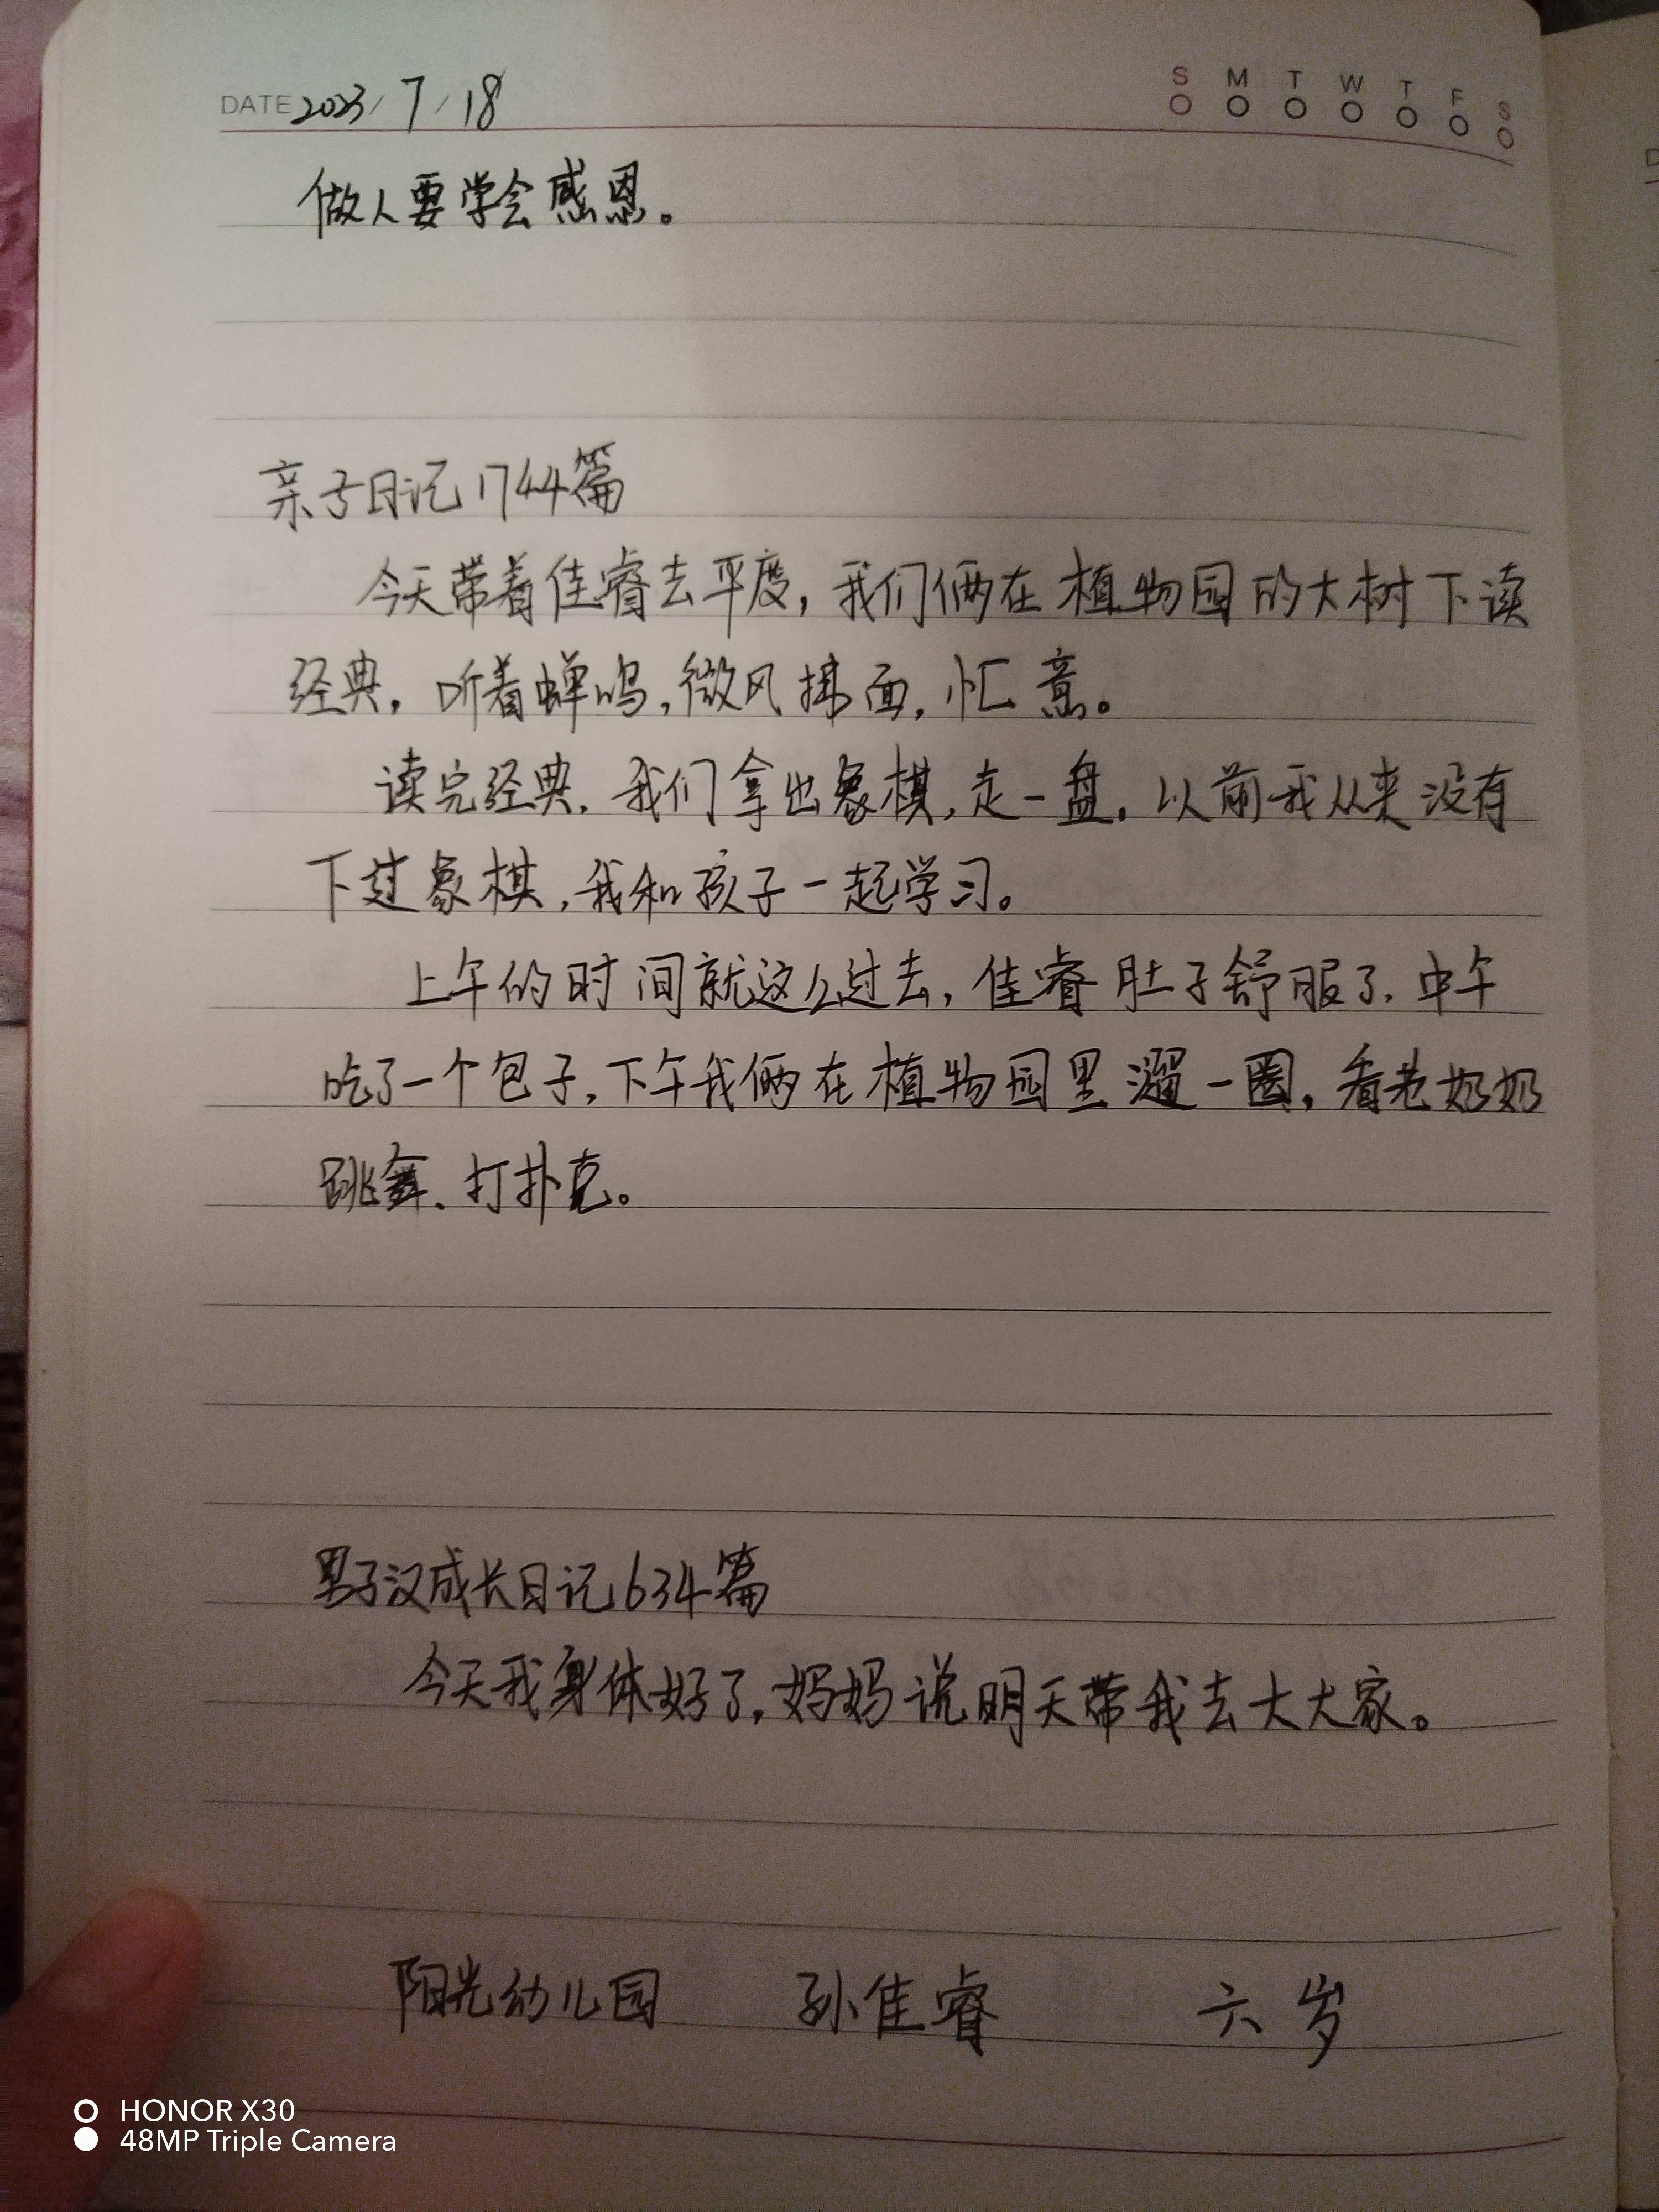 DATE 2023/7/18
S M T W T F S
做人要学会感恩。
亲子日记1744篇
今天带着佳睿去平度,我们俩在植物园的大树下读
经典,听着蝉鸣,微风拂面,惬意。
读完经典,我们拿出象棋,走一盘。以前我从来没有
下过象棋,我和孩子一起学习。
上午的时间就这么过去,佳睿肚子舒服了,中午
吃了一个包子,下午我俩在植物园里遛一圈,看老奶奶
跳舞、打扑克。
男子汉成长日记634篇
今天我身体好了,妈妈说明天带我去大大家。
阳光幼儿园 孙佳睿 六岁
HONOR X30
48MP Triple Camera